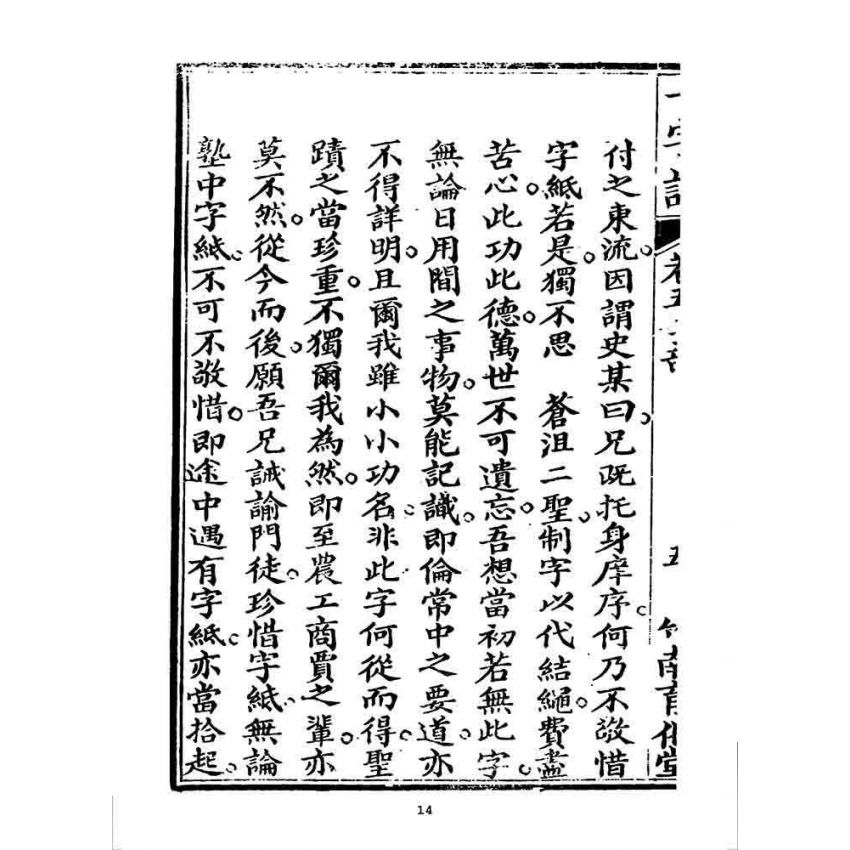 付之東流。因謂史某曰。兄既托身庠序。何乃不敬惜
字紙。若是。獨不思　蒼沮二聖。制字以代結繩。費盡
苦心。此功此德。萬世不可遺忘。吾想當初若無此字。
無論日用間之事物。莫能記識。即倫常中之要道。亦
不得詳明。且爾我雖小小功名。非此字何從而得。聖
蹟之當珍重。不獨爾我為然。即至農工商賈之輩。亦
莫不然。從今而後。願吾兄誡諭門徒。珍惜字紙。無論
塾中字紙。不可不敬惜。即途中遇有字紙。亦當拾起。
卷五
五
南育化堂
14